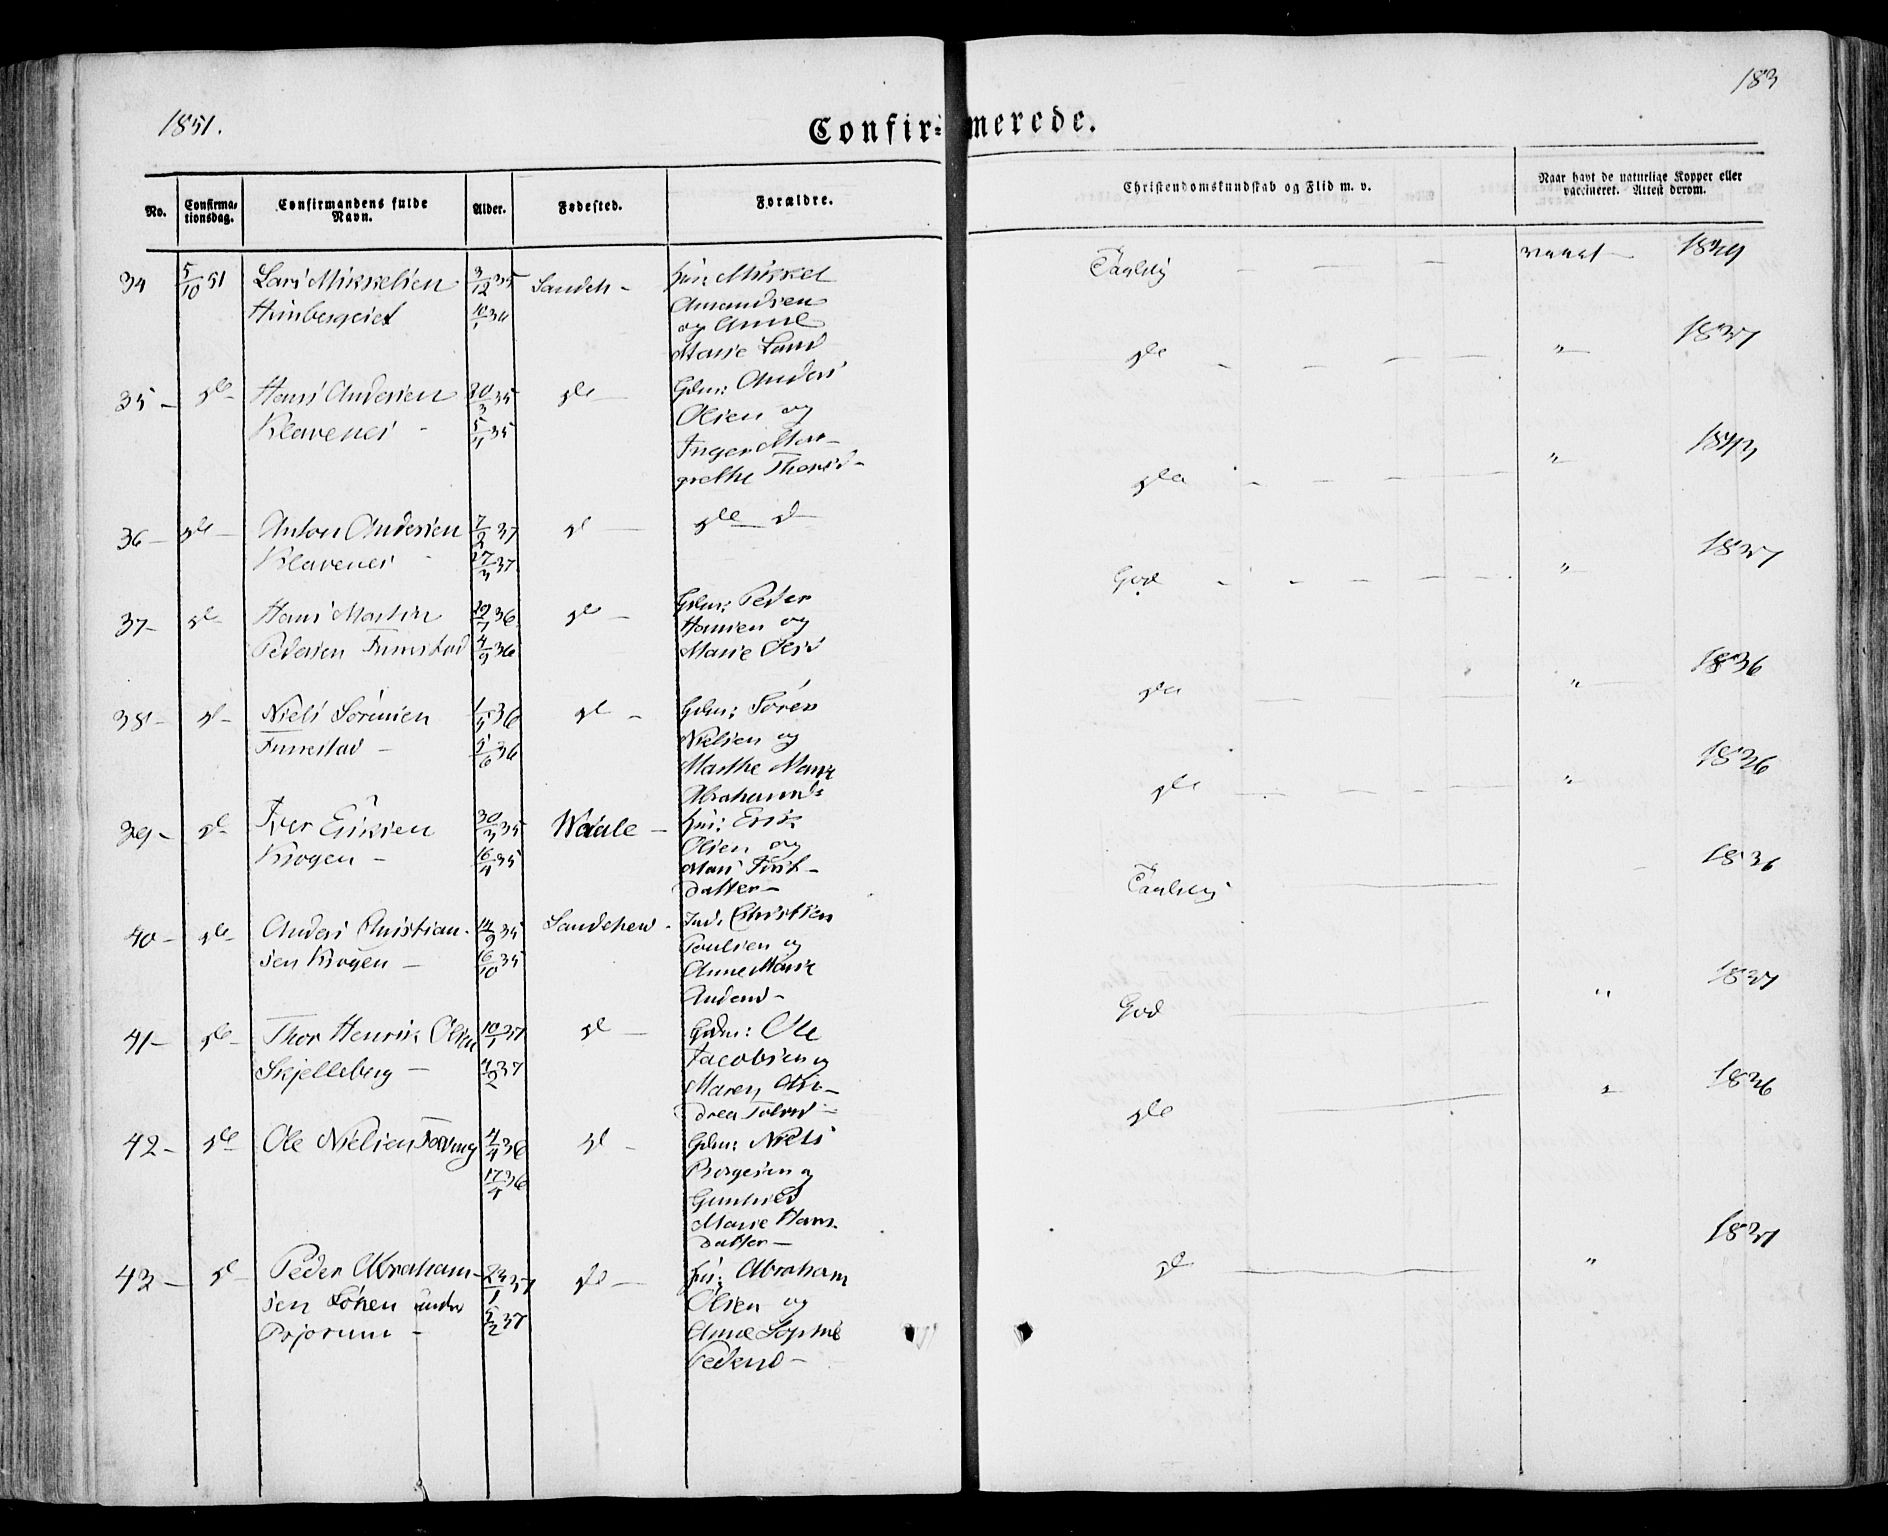 1851.
183
Confir=merede.
No.
Confirma=
tionsdag.
Confirmandens fulde
Navn.
Alder.
Fødested.
Forældre.
Christendomskundskab og Flid m. v.
Naar havt de naturlige Kopper eller
vaccineret. Attest derom.
34 5/10 51 Lars Mikkelsen 3/12 35 Sandeh - Hus: Mikkel Taalelig vaact 1839
10/1 36 Amundsen
og Anne
Marie Larsd
35 - do - Hans Andersen 30/3 35 do - Gdm: Anders do " 1837
Klavenes - 5/4 35 Olsen og
Inger Mar-
grethe Thorsd-
36 - do - Anton Andersen 7/2 37 d - do d do " 1843
Klavenes - 27/3 37
37 - do Hans Martin 29/7 36 do - Gdm: Peder God " 1837
Pedersen Furustad 4/9 36 Hansen og
Marie Olsd
38 - d - Niels Sørensen 1/5 36 do - Gdm: Søren do " 1836
Furustad - 5/6 36 Nielsen og
Marthe Marie
Abrahamsd:
39 - d - Iver Eriksen 30/3 35 Waale - Hus: Erik do " 1836
Krogen - 16/4 35 Olsen og
Mari Iver-
datter -
40 - do - Anders Christian- 14/9 35 Sandehed - Ind: Christian Taalelig 1836
sen Krogen - 16/10 35 Poulsen og
Anne Marie
Andersd -
41 - do - Thor Henrik Olsen 10/1 37 do - Gdm: Ole God " 1837
Skjelleberg - 4/2 37 Jacobsen og
Maren An-
drea Tolvsd -
42 - do - Ole Nielsen 4/4 36 d - Gdm: Niels do " 1836
17/4 36 Borgesen og
Gunhild
Marie Hans-
datter -
43 - d - Peder Abraham- 22/1 37 do - Hus: Abraham do " 1837
sen Løken under 5/2 37 Olsen og
Bjørum - Anne Sophie
Pedersd -